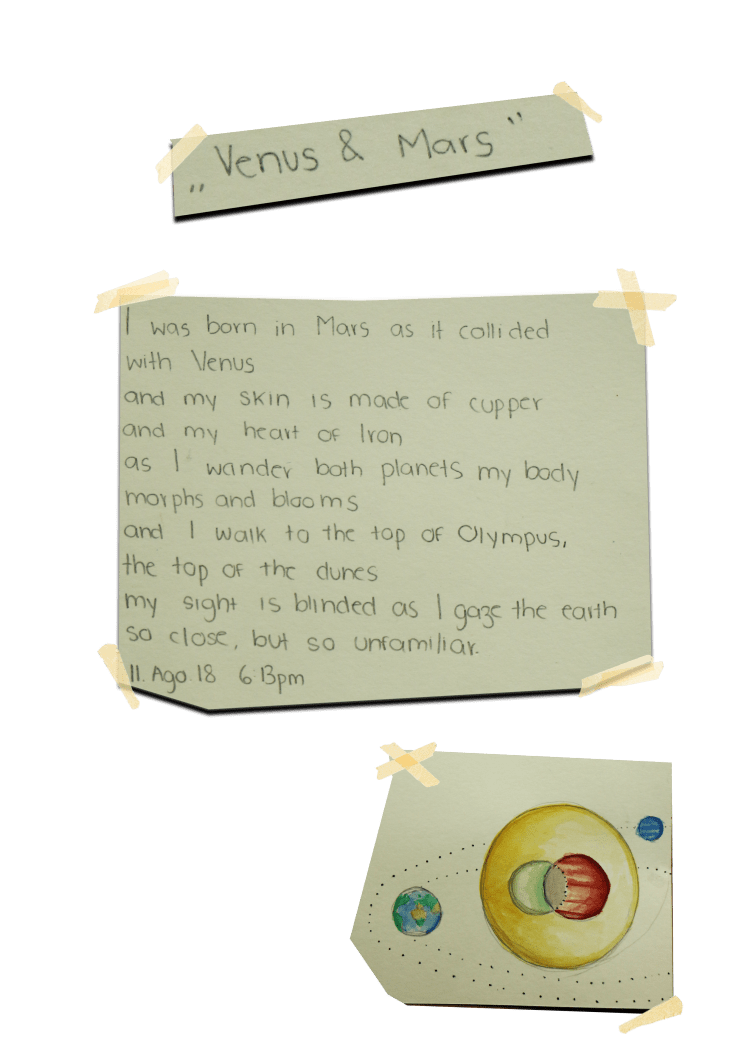 „Venus & Mars"
I was born in Mars as it collided
with Venus
and my skin is made of cupper
and my heart of Iron
as I wander both planets my body
morphs and blooms
and I walk to the top of Olympus,
the top of the dunes
my sight is blinded as I gaze the earth
so close, but so unfamiliar.
11. Ago 18 6:13pm